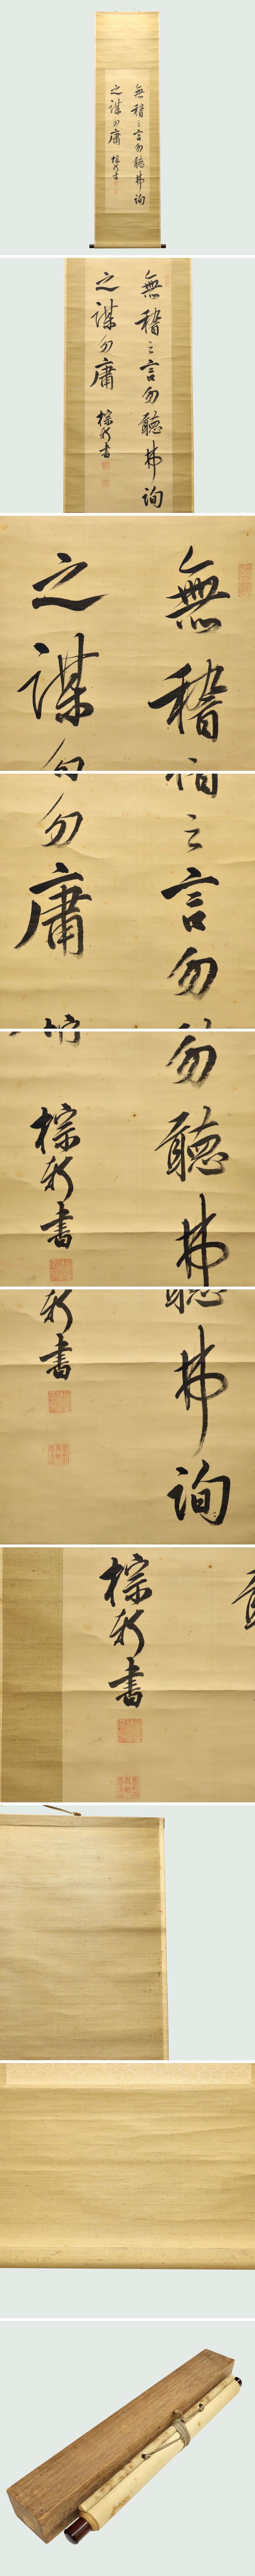 無稽之言勿聽弗詢
之謀勿庸
棕軒書